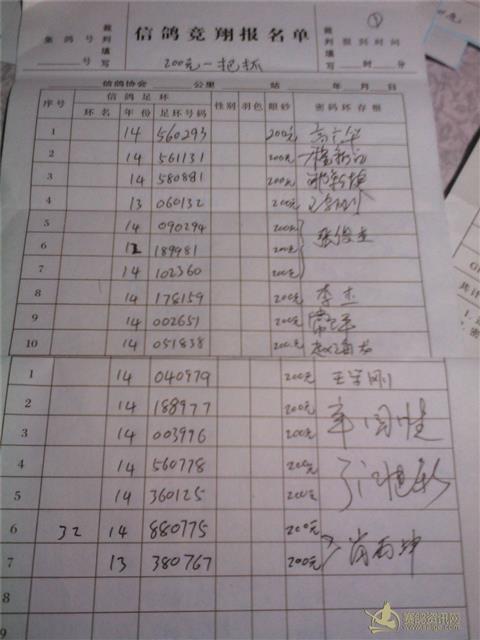 ①
集鸽号 裁判填写 信鸽竞翔报名单 裁判填写 报到时间
号 200元一把抓 时 分
信鸽协会 公里 站 年 月 日
序号 信鸽足环 性别 羽色 眼砂 密码环存根
环名 年份 足环号码
1 14 560293 200元
2 14 561131 200元
3 14 580881 200元
4 13 060132 200元
5 14 090294 200元
6 12 189981 200元 张俊杰
7 14 102360 200元
8 14 178159 200元 李杰
9 14 002651 200元
10 14 051838 200元
1 14 040979 200元 王学刚
2 14 188977 200元
3 14 003976 200元
4 14 560778 200元
5 14 360125 200元
6 32 14 880775 200元
7 13 380767 200元
8
9
赛鸽资讯网